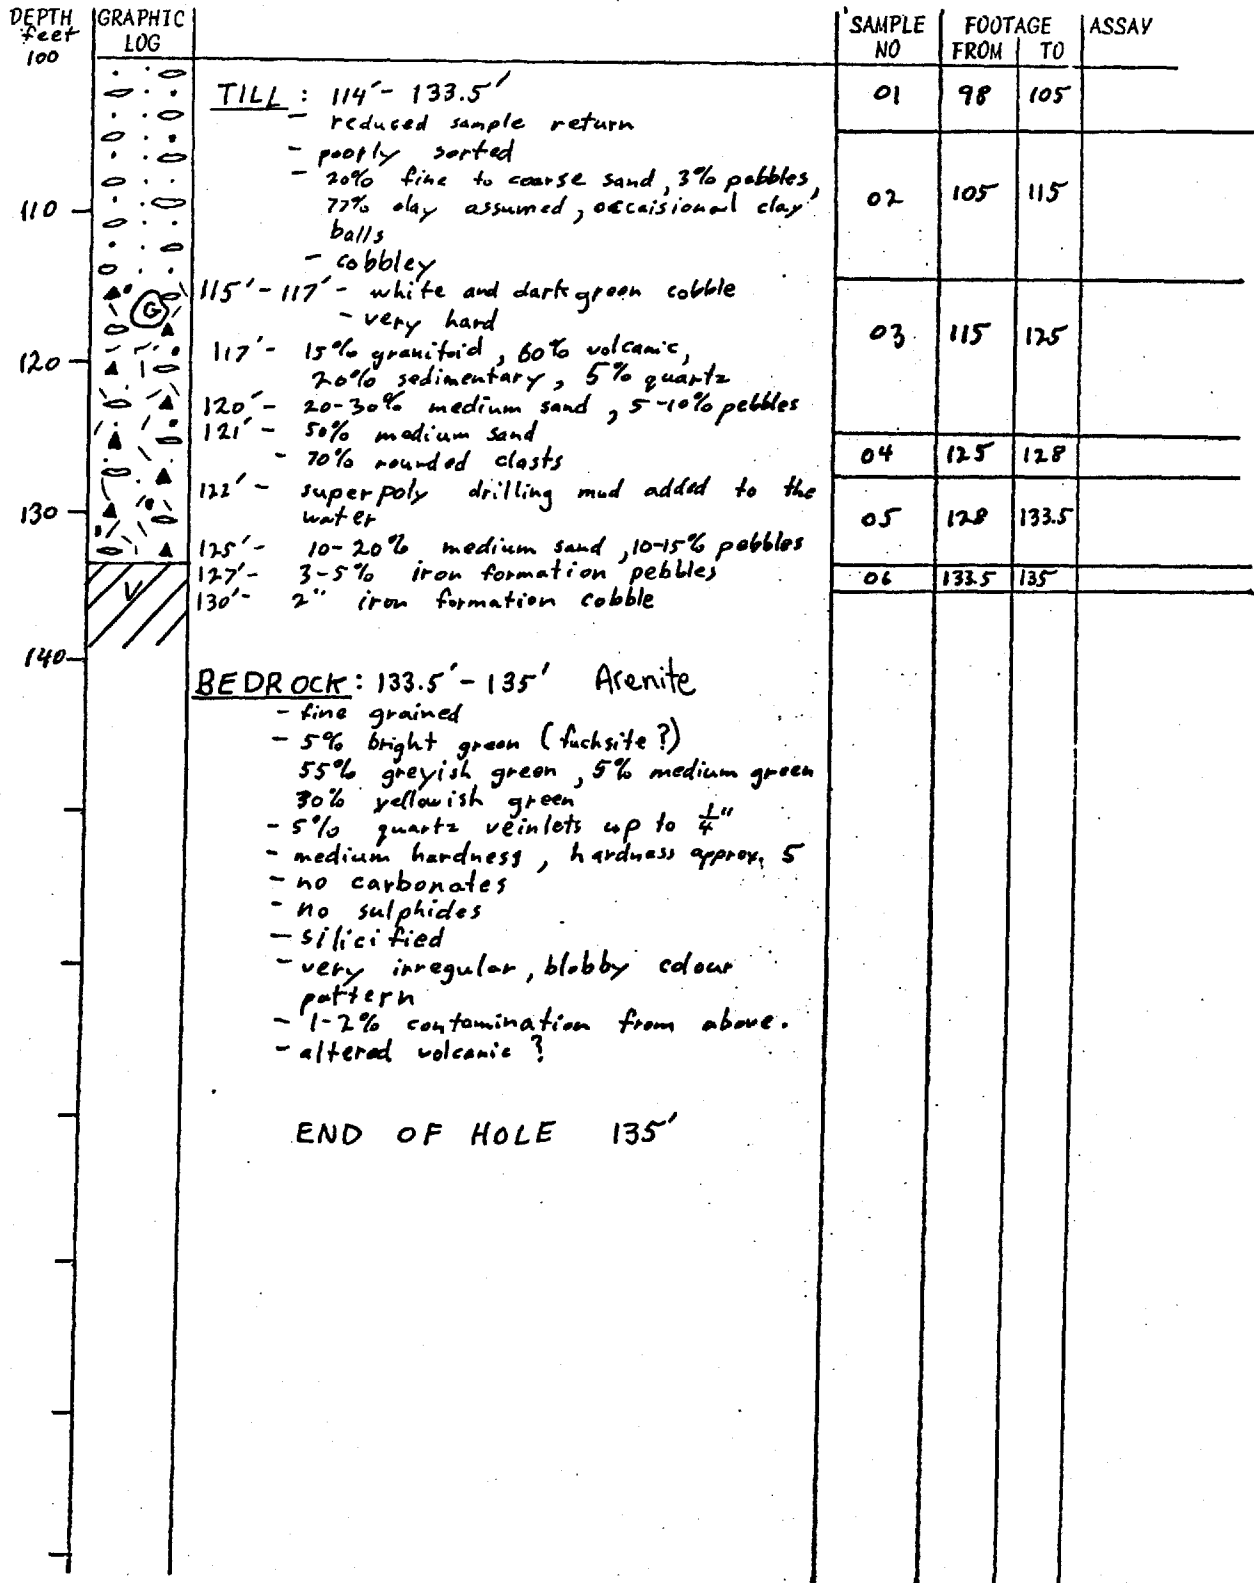 DEPTH feet
GRAPHIC LOG
SAMPLE NO
FOOTAGE
FROM TO
ASSAY
100
TILL : 114' - 133.5'
- reduced sample return
- poorly sorted
- 20% fine to coarse sand, 3% pebbles,
77% clay assumed, occaisional clay
balls
- cobbley
115' - 117' - white and dark green cobble
- very hard
117' - 15% granitoid, 60% volcanic,
20% sedimentary, 5% quartz
120' - 20-30% medium sand, 5-10% pebbles
121' - 50% medium sand
- 70% rounded clasts
122' - superpoly drilling mud added to the
water
125' - 10-20% medium sand, 10-15% pebbles
127' - 3-5% iron formation pebbles
130' - 2" iron formation cobble
BEDROCK : 133.5' - 135' Arenite
- fine grained
- 5% bright green (fuchsite?)
55% greyish green, 5% medium green
30% yellowish green
- 5% quartz veinlets up to 1/4"
- medium hardness, hardness approx. 5
- no carbonates
- no sulphides
- silicified
- very irregular, blobby colour
pattern
- 1-2% contamination from above.
- altered volcanic ?
END OF HOLE 135'
110
120
130
140
G
V
01 98 105
02 105 115
03 115 125
04 125 128
05 128 133.5
06 133.5 135